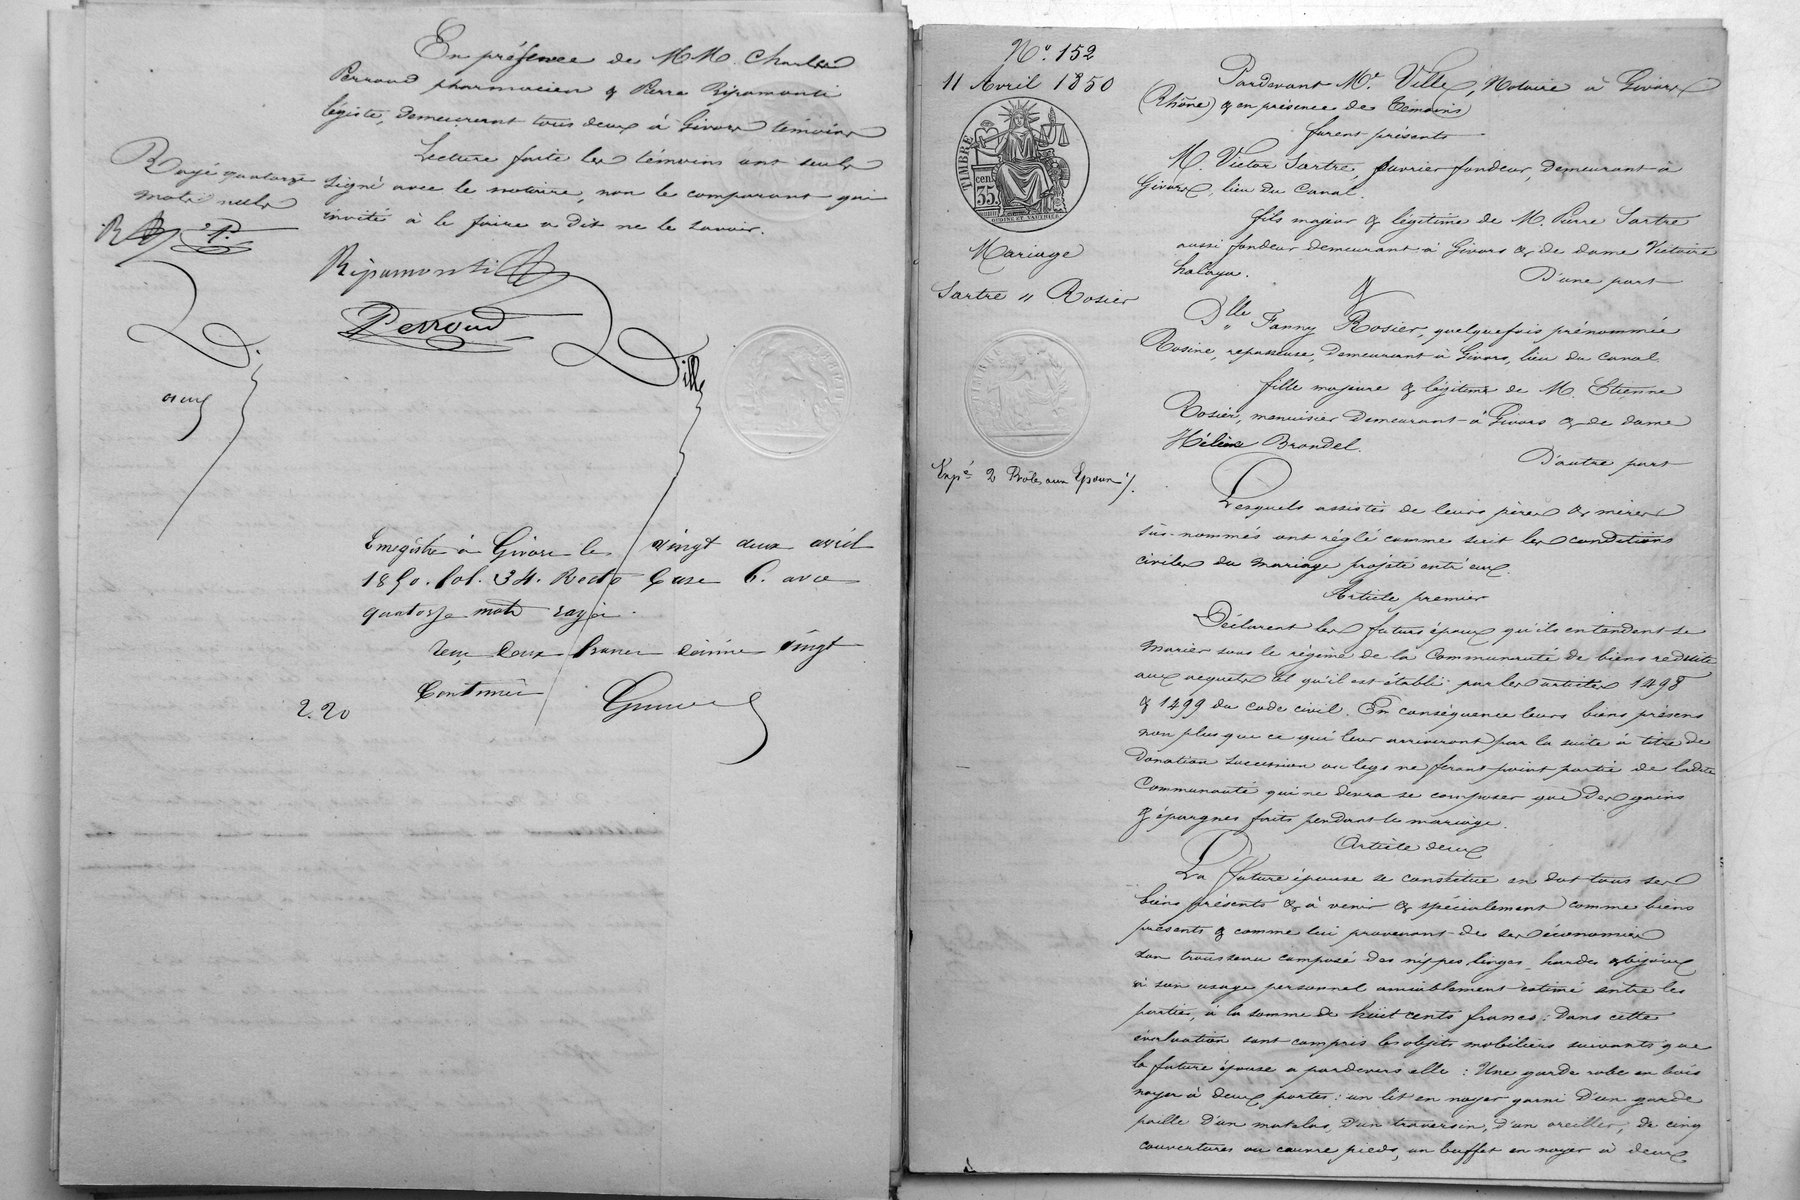 En présence de MM. Charles
Perroud pharmacien & Pierre Ripamonti
légiste, demeurant tous deux à Givors témoins
Lecture faite les témoins ont seuls
signé avec le notaire, non le comparant qui
invité à le faire a dit ne le savoir.
Rayé quatorze
mots nuls
R P.
Ripamonti
Perroud
Ville
Enregistré à Givors le vingt deux avril
1850. fol. 34. Recto Case 6. avec
quatorze mots rayés.
Reçu Deux francs décime vingt
Centimes
2.20
N° 152
11 Avril 1850
TIMBRE
35 cent
Mariage
Sartre " Rosier
Expé 2 Rôles aux Epoux
Pardevant Me. Ville, Notaire à Givors
(Rhône) & en présence de témoins
furent présents
M. Victor Sartre, ouvrier fondeur, demeurant à
Givors, lieu du Canal.
fils majeur & légitime de M. Pierre Sartre
aussi fondeur demeurant à Givors & de dame Victoire
D'une part
&
Dlle Fanny Rosier, quelquefois prénommée
Rosine, repasseuse, demeurant à Givors, lieu du Canal.
fille majeure & légitime de M. Etienne
Rosier, menuisier demeurant à Givors & de dame
Hélène Brondel.
D'autre part
Lesquels assistés de leurs pères & mères
sus-nommés ont réglé comme suit les conditions
civiles du mariage projeté entr'eux.
Article premier
Déclarent les futurs époux qu'ils entendent se
marier sous le régime de la Communauté de biens réduite
aux acquets tel qu'il est établi par les articles 1498
& 1499 du code civil. En conséquence leurs biens présens
non plus que ce qui leur arriveront par la suite à titre de
donation succession ou legs ne feront point partie de ladite
Communauté qui ne devra se composer que des gains
& épargnes faits pendant le mariage.
Article deux
La future épouse se constitue en dot tous ses
biens présents & à venir & spécialement comme biens
présents & comme lui provenant de ses économies
son trousseau composé des nippes, linges, hardes & bijoux
à son usage personnel amiablement estimé entre les
parties, à la somme de huit cents francs : Dans cette
évaluation sont compris les objets mobiliers suivants que
la future épouse a pardevers elle : Une garde robe en bois
noyer à deux portes : un lit en noyer garni d'un garde
paille d'un matelas, d'un traversin, d'un oreiller, de cinq
couvertures ou couvre pieds, un buffet en noyer à deux